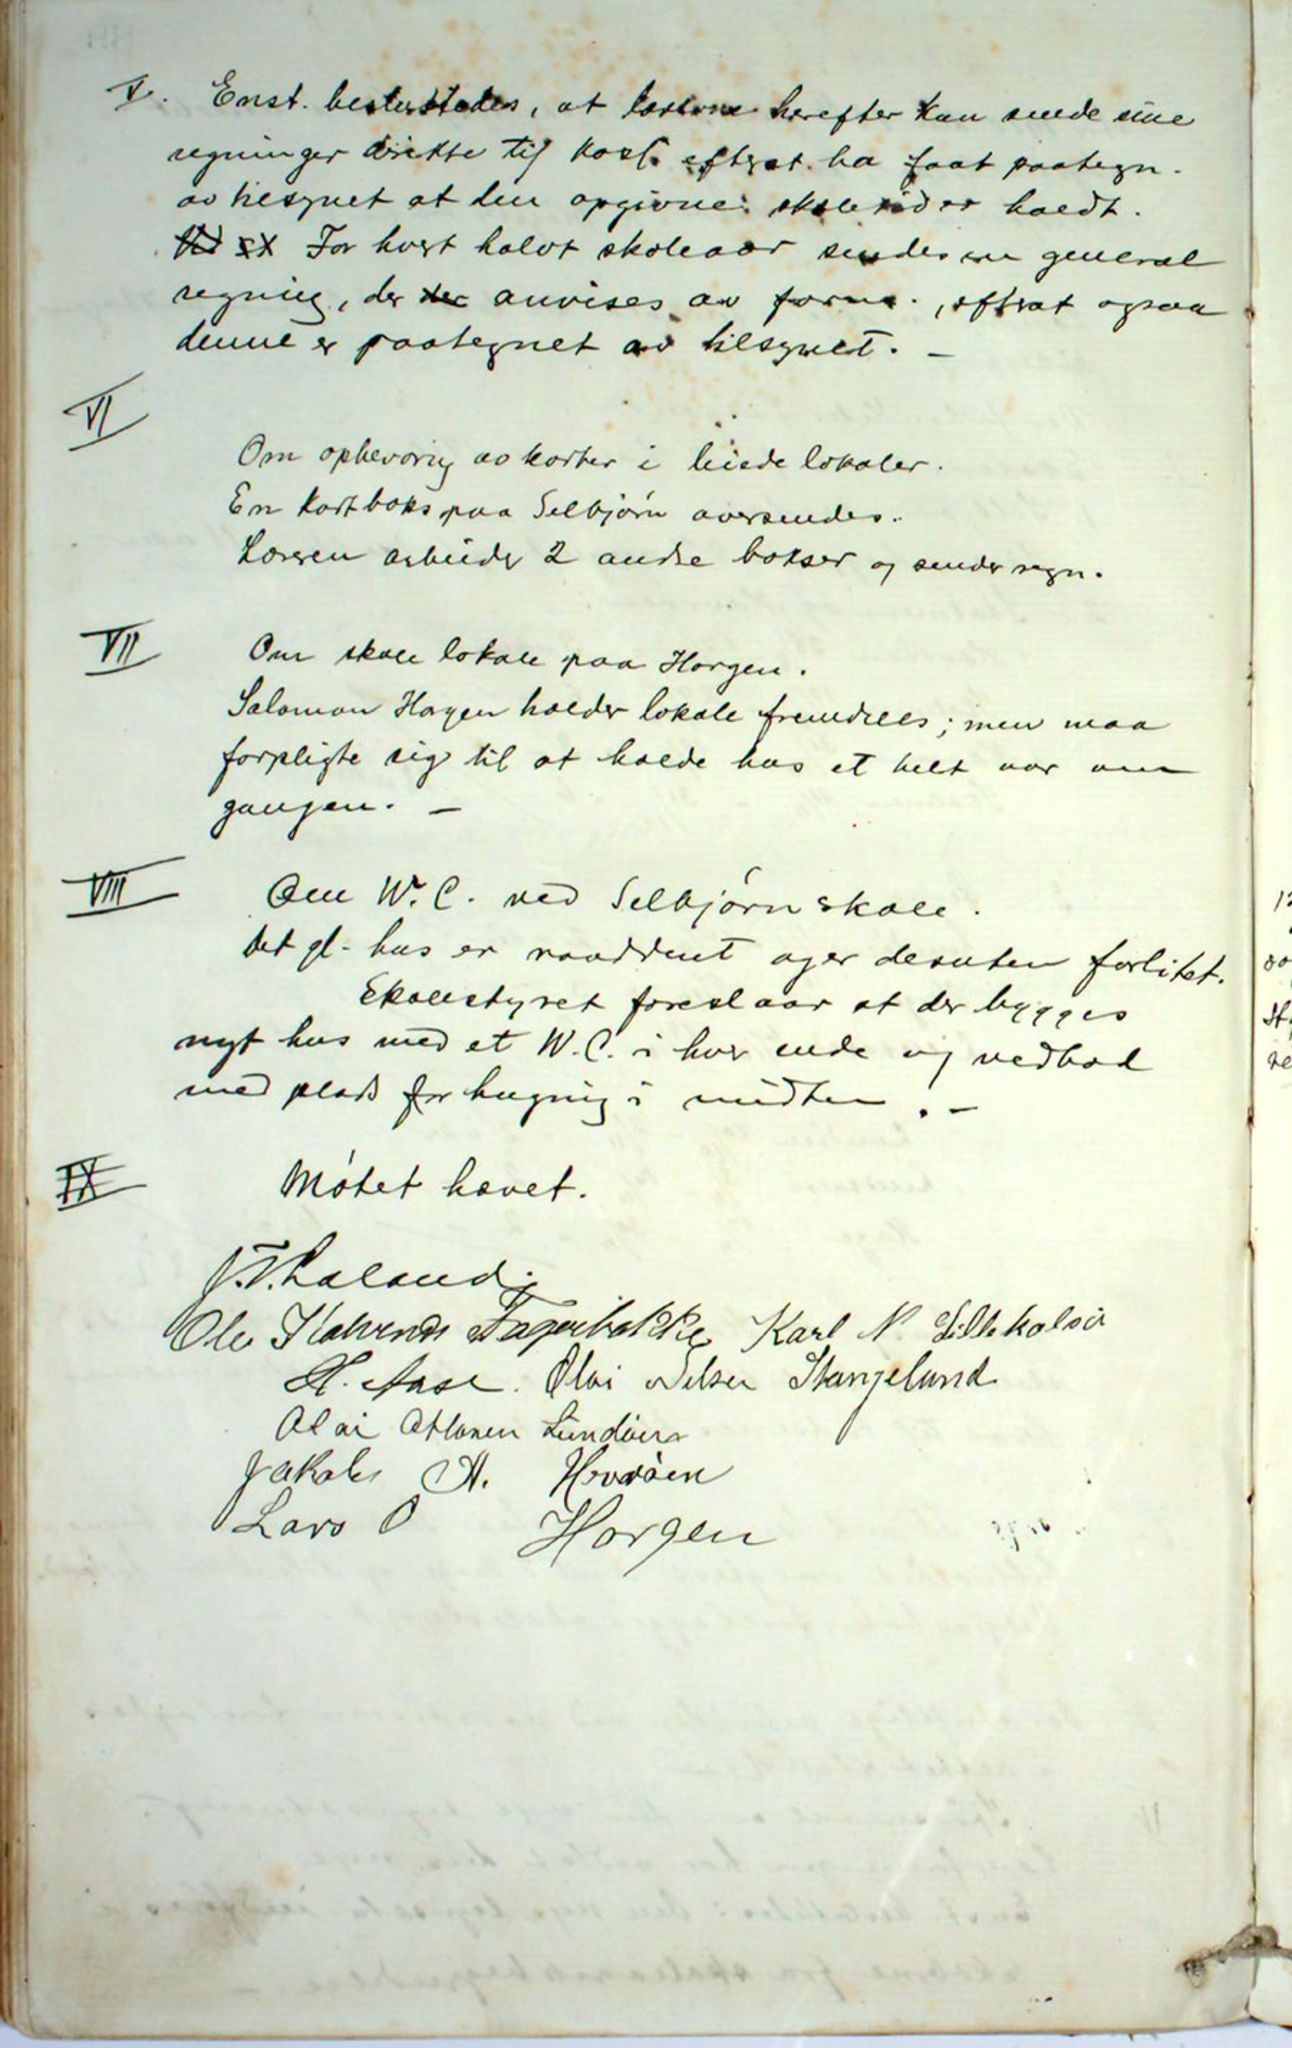 V. Enst. besluttedes, at lærerne herefter kan sende sine
regninger direkte til kass. efterat ha faat paategn.
av tilsynet at den opgivne skoletid er holdt.
For hvert halvt skoleaar sendes en general
regning, der anvises av form., efterat ogsaa
denne er paategnet av tilsynet. –
VI
Om opbevaring av karter i leiede lokaler.
En kartboks paa Selbjørn oversendes.
Læreren arbeider 2 andre bokser og sender regn.
VII Om skole lokale paa Horgen.
Salamon Horgen holder lokale fremdeles; men maa
forpligte sig til at holde hus et helt aar om
gangen. –
VIII Om W.C. ved Selbjørn skole.
Det gl. hus er raaddent og er desuten forlitet.
Skolestyret foreslaar at der bygges
nyt hus med et W.C. i hver ende og vedbod
med plads for hugning i midten. –
IX Møtet hævet.
Ole Fagerbakke Karl N. Lillekalsøi
H. Aase. Olai Nelsen Stangeland
Olai Lundøen
Jakob A. Hevrøen
Lars O Horgen